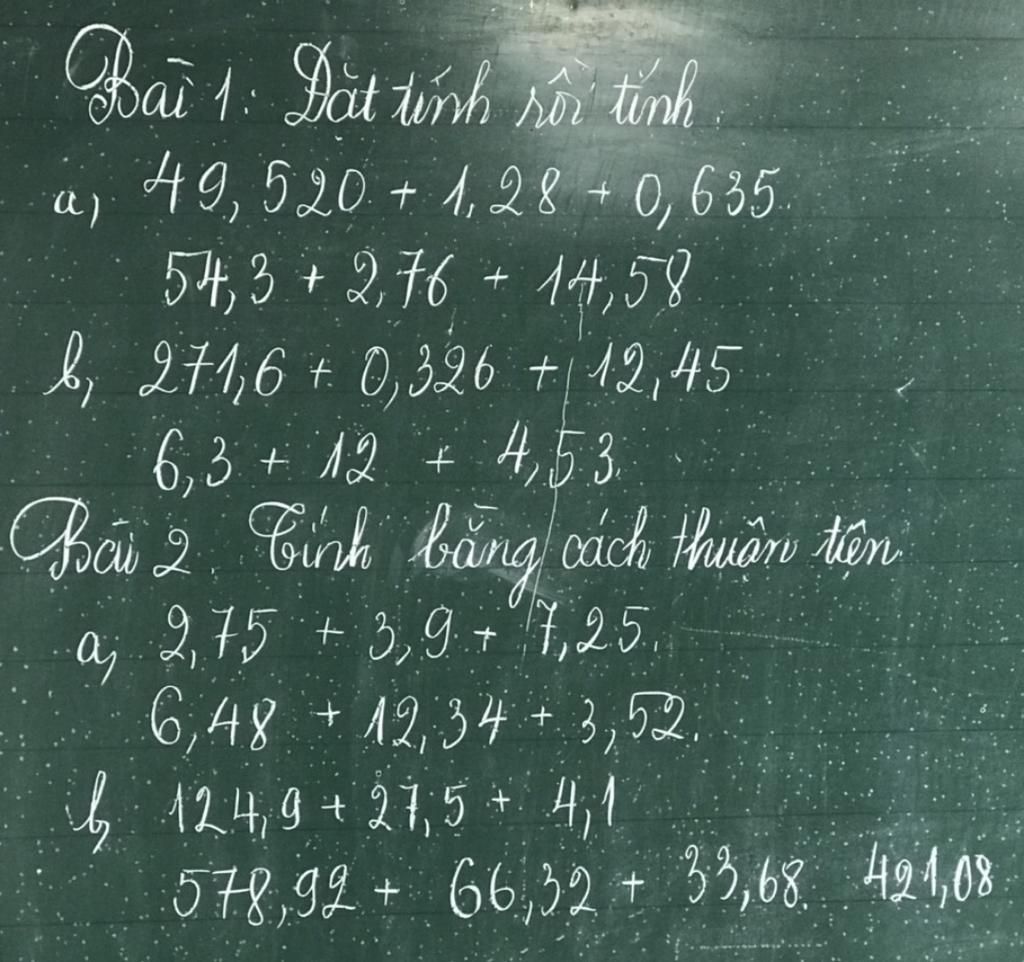 Bài 1: Đặt tính rồi tính.
a, 49,520 + 1,28 + 0,635.
54,3 + 2,76 + 14,58
b, 271,6 + 0,326 + 12,45
6,3 + 12 + 4,53.
Bài 2. Tính bằng cách thuận tiện.
a, 2,75 + 3,9 + 7,25.
6,48 + 12,34 + 3,52.
b, 124,9 + 27,5 + 4,1
578,92 + 66,32 + 33,68. 421,08